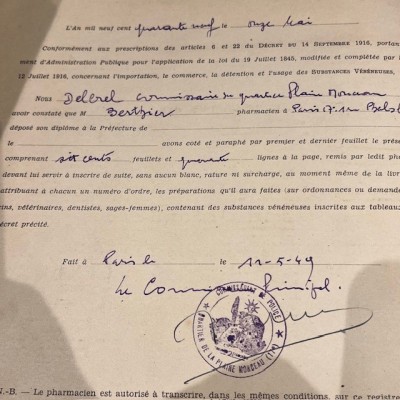 L'An mil neuf cent quarante neuf le onze Mai
Conformément aux prescriptions des articles 6 et 22 du DÉCRET DU 14 SEPTEMBRE 1916, portan
ment d'Administration Publique pour l'application de la loi du 19 Juillet 1845, modifiée et complétée par l
12 Juillet 1916, concernant l'importation, le commerce, la détention et l'usage des SUBSTANCES VÉNÉNEUSES,
Nous Delcrel Commissaire du quartier Plaine Monceau
avoir constaté que M Berthier pharmacien à Paris 17
déposé son diplôme à la Préfecture de
le avons coté et paraphé par premier et dernier feuillet le prése
comprenant sept cents feuillets et quarante lignes à la page, remis par ledit ph
devant lui servir à inscrire de suite, sans aucun blanc, rature ni surcharge, au moment même de la livr
attribuant à chacun un numéro d'ordre, les préparations qu'il aura faites (sur ordonnances ou demande
ins, vétérinaires, dentistes, sages-femmes), contenant des substances vénéneuses inscrites aux tableaux
écret précité.
Fait à Paris le le 11-5-49
Le Commissaire Principal
COMMISSARIAT DE POLICE
QUARTIER DE LA PLAINE MONCEAU
N.-B. — Le pharmacien est autorisé à transcrire, dans les mêmes conditions, sur ce registre